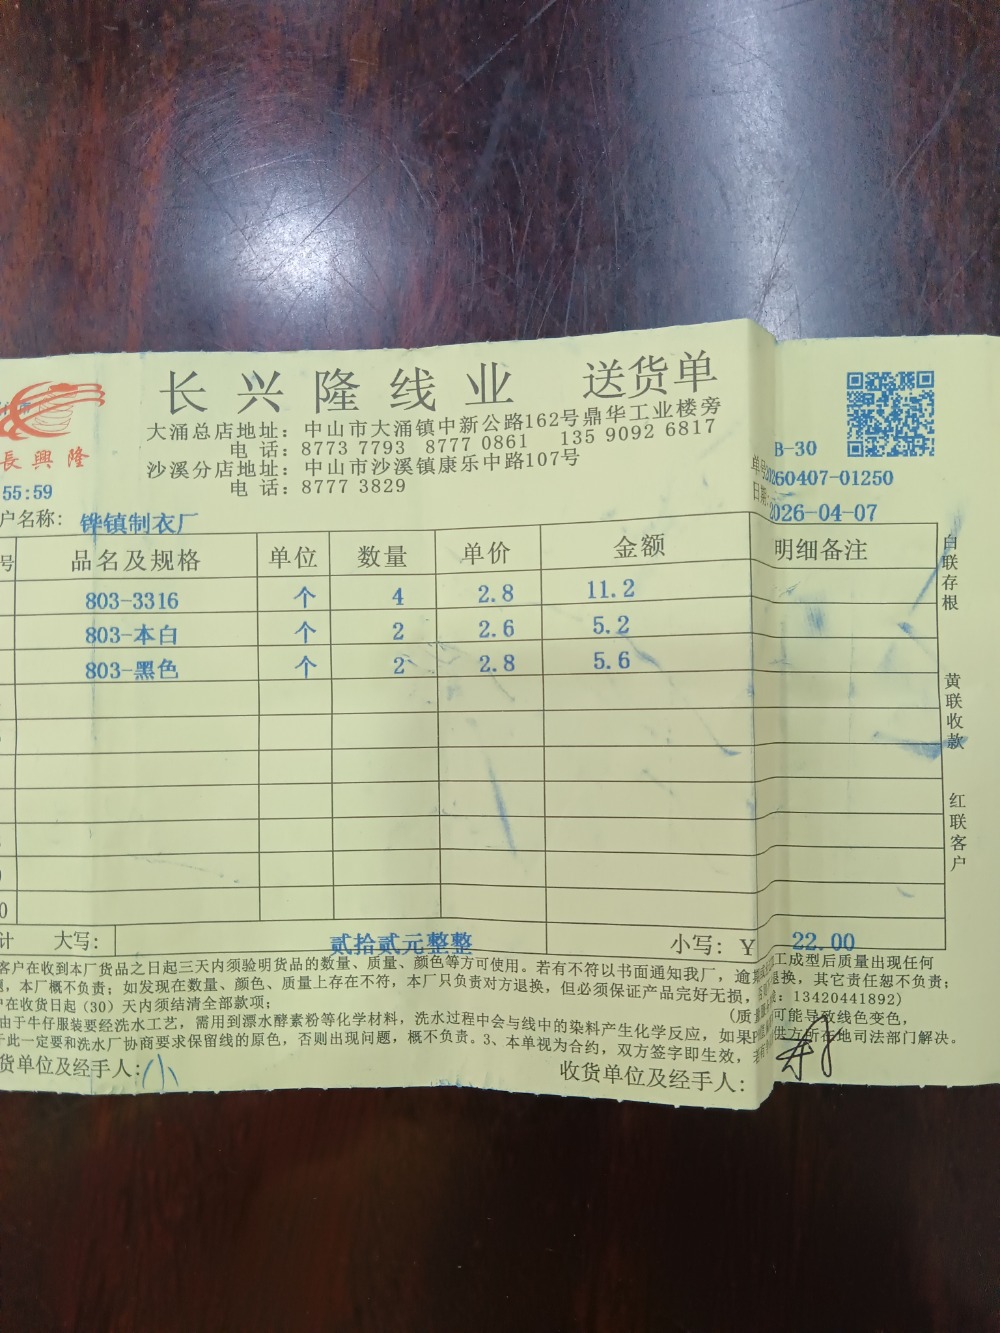 长兴隆线业 送货单
大涌总店地址：中山市大涌镇中新公路162号鼎华工业楼旁
电 话：8773 7793 8777 0861 135 9092 6817
沙溪分店地址：中山市沙溪镇康乐中路107号
电 话：8777 3829
長興隆
B-30
55:59
单号 60407-01250
日期： 2026-04-07
户名称： 铧镇制衣厂
号 品名及规格 单位 数量 单价 金额 明细备注
803-3316 个 4 2.8 11.2
803-本白 个 2 2.6 5.2
803-黑色 个 2 2.8 5.6
0
计 大写： 贰拾贰元整整 小写：Y 22.00
客户在收到本厂货品之日起三天内须验明货品的数量、质量、颜色等方可使用。若有不符以书面通知我厂，逾 工成型后质量出现任何
，本厂概不负责；如发现在数量、颜色、质量上存在不符，本厂只负责对方退换，但必须保证产品完好无损， 退换，其它责任恕不负责；
在收货日起（30）天内须结清全部款项； (质 ：13420441892)
由于牛仔服装要经洗水工艺，需用到漂水酵素粉等化学材料，洗水过程中会与线中的染料产生化学反应，如果 可能导致线色变色，
此一定要和洗水厂协商要求保留线的原色，否则出现问题，概不负责。3、本单视为合约，双方签字即生效， 供方所在地司法部门解决。
货单位及经手人： 小 收货单位及经手人：
白联存根
黄联收款
红联客户